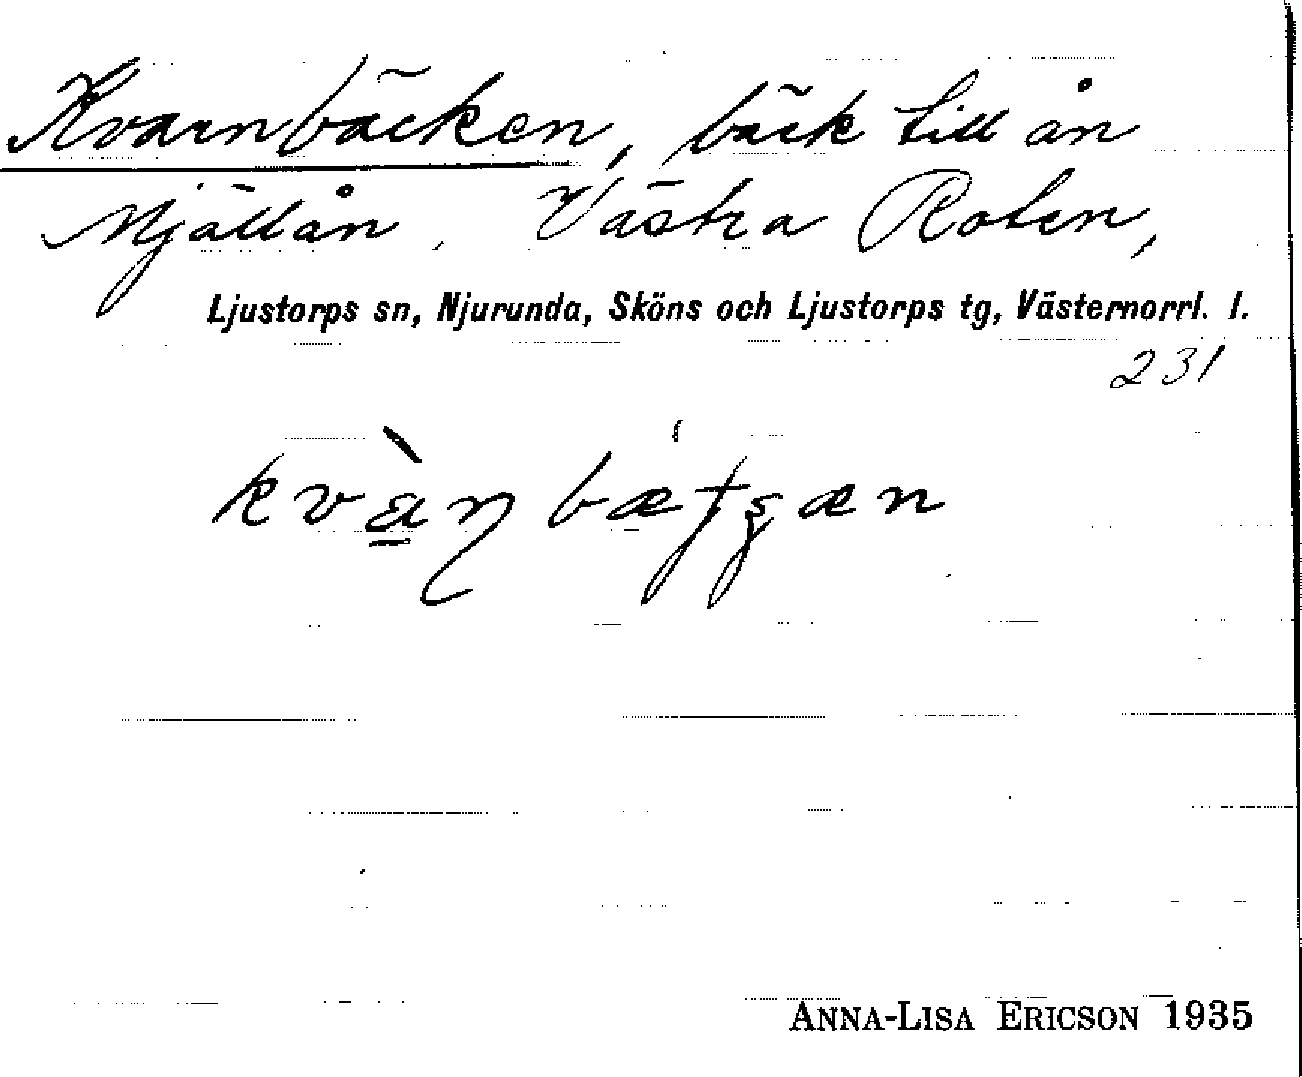 Kvarnbäcken, bäck till ån
Mjällån. Västra Roten,
Ljustorps sn, Njurunda, Sköns och Ljustorps tg, Västernorrl. l.
231
ANNA-LISA ERICSON 1935